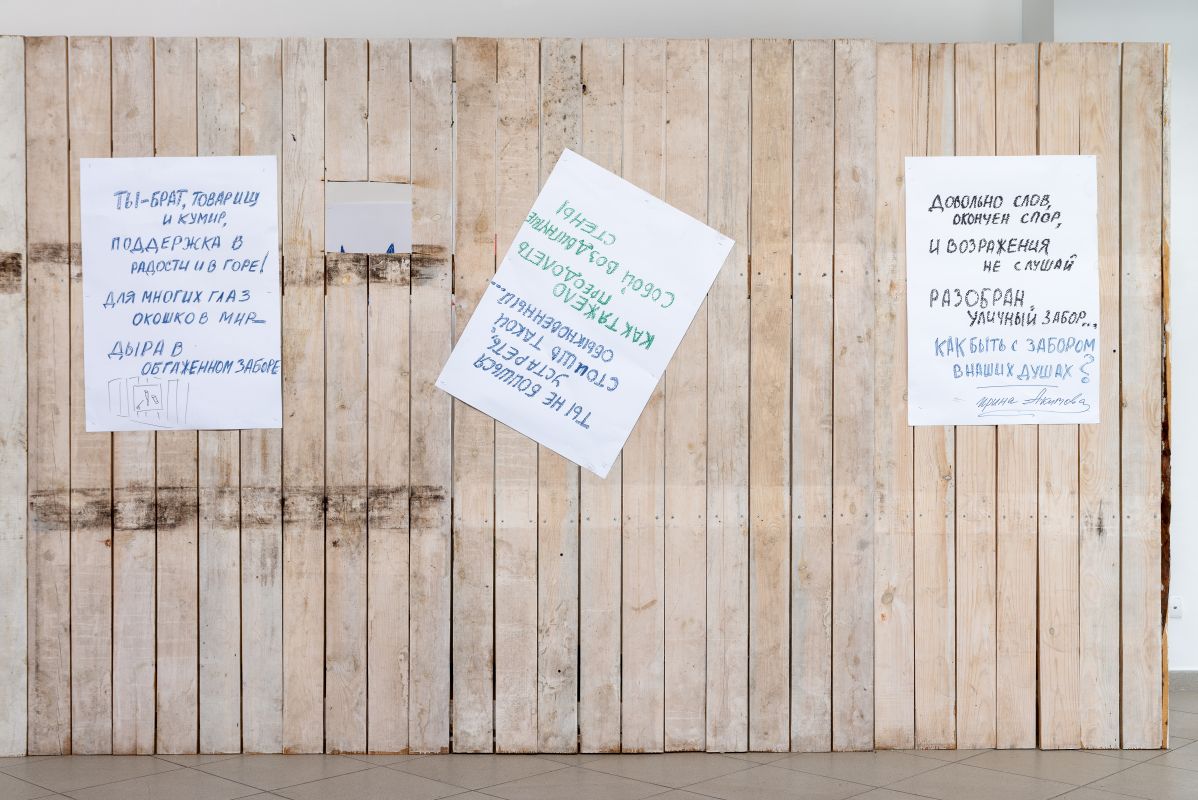 ТЫ-БРАТ, ТОВАРИЩ
И КУМИР,
ПОДДЕРЖКА В
РАДОСТИ И В ГОРЕ!
ДЛЯ МНОГИХ ГЛАЗ
ОКОШКО В МИР—
ДЫРА В
ОБГАЖЕННОМ ЗАБОРЕ
ТЫ НЕ БОИШЬСЯ
УСТАРЕТЬ,
СТОИШЬ ТАКОЙ
ОБЫКНОВЕННЫЙ...
КАК ТЯЖЕЛО
ПРЕОДОЛЕТЬ
СОБОЙ ВОЗДВИГНУТЫЕ
СТЕНЫ
ДОВОЛЬНО СЛОВ,
ОКОНЧЕН СПОР,
И ВОЗРАЖЕНИЯ
НЕ СЛУШАЙ
РАЗОБРАН
УЛИЧНЫЙ ЗАБОР...
КАК БЫТЬ С ЗАБОРОМ
В НАШИХ ДУШАХ?
Ирина Акимова